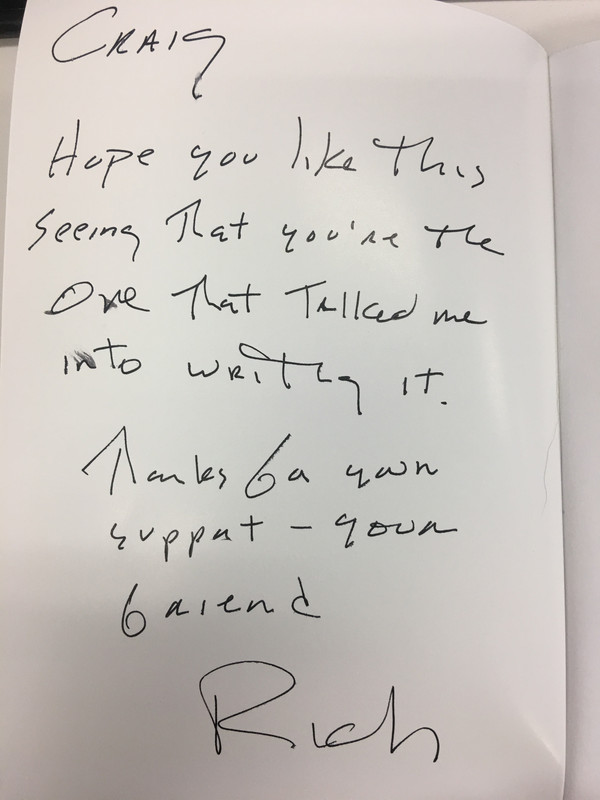 CRAIG
Hope you like this
Seeing That you're the
One that Talked me
into writing it.
Thanks for your
support - your
friend
Rich